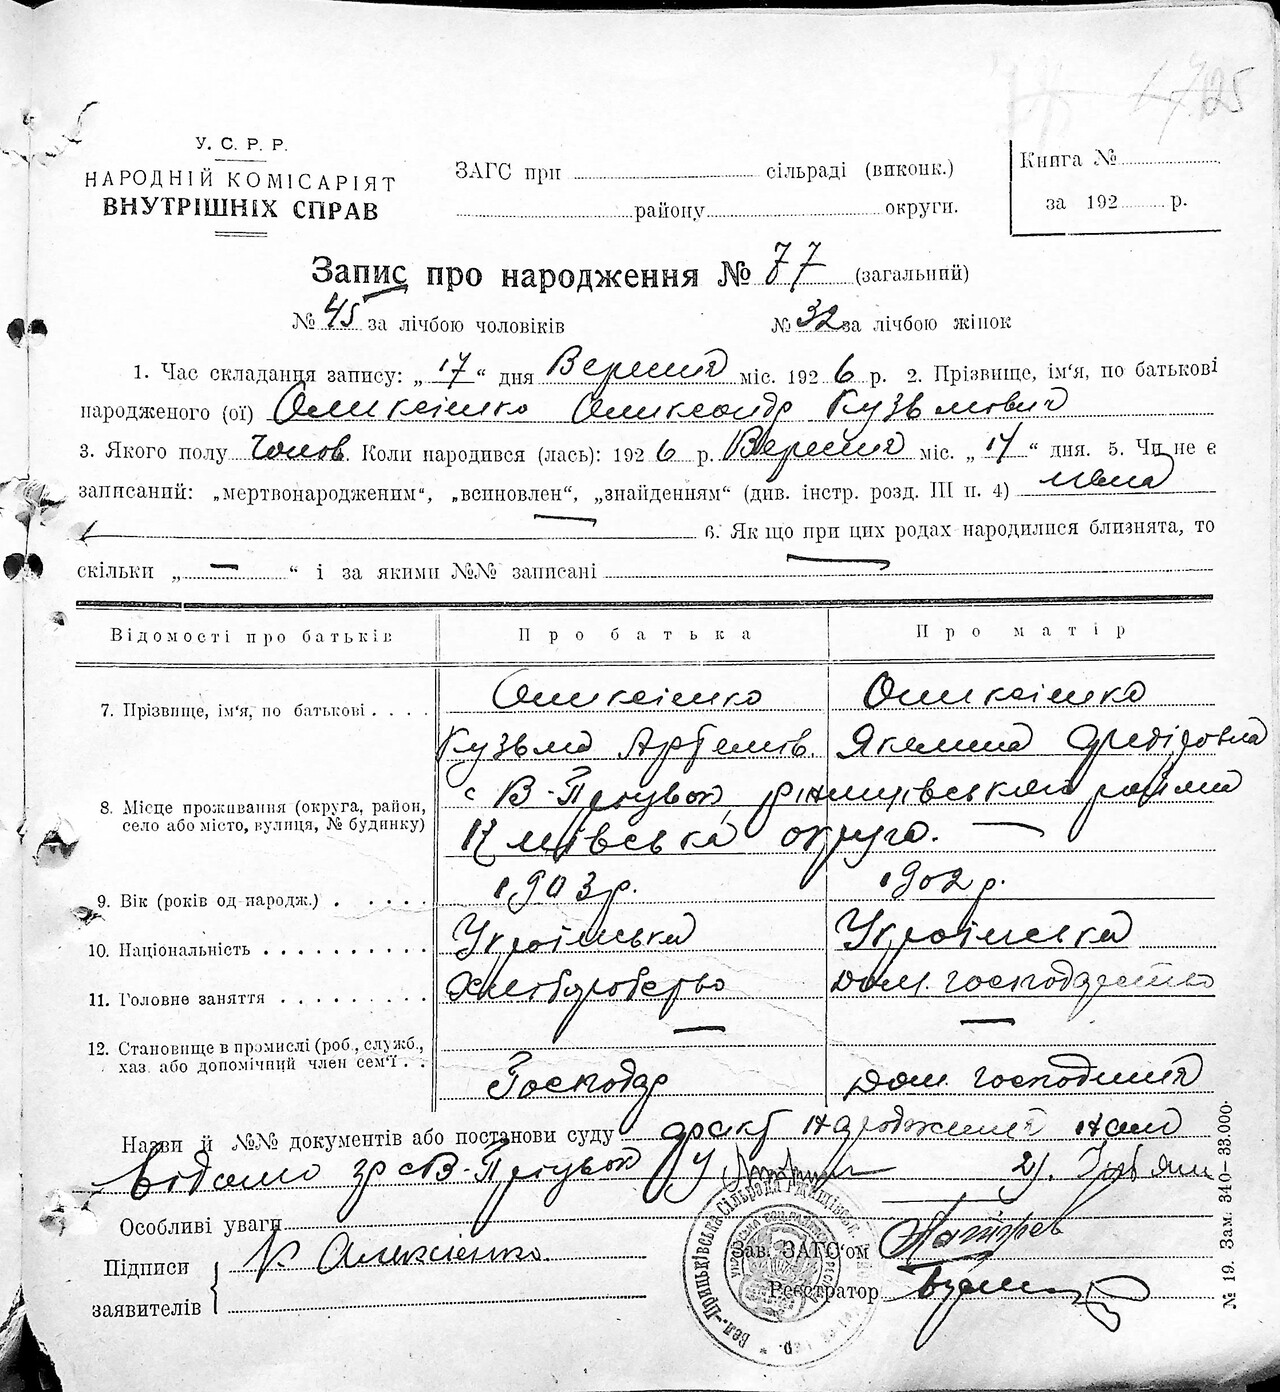 25
У. С. Р. Р.
НАРОДНІЙ КОМІСАРІЯТ
ВНУТРІШНІХ СПРАВ
ЗАГС при сільраді (виконк.)
району округи.
Книга №
за 192 р.
Запис про народження № 77 (загальний)
№ 45 за лічбою чоловіків № 32 за лічбою жінок
1. Час складання запису: „17“ дня Вересня міс. 1926 р. 2. Прізвище, ім'я, по батькові
народженого (ої) Олексієнко Олександр Кузьмович
3. Якого полу Чолов. Коли народився (лась): 1926 р. Вересня міс. „17“ дня. 5. Чи не є
записаний: „мертвонародженим“, „всиновлен“, „знайденням“ (див. інстр. розд. III п. 4) нема
— 6. Як що при цих родах народилися близнята, то
скільки „—“ і за якими №№ записані —
Відомості про батьків Про батька Про матір
7. Прізвище, ім'я, по батькові . . . . Олексієнко Олексієнко
Кузьма Артемів. Якелина Федіровна
8. Місце проживання (округа, район, село або місто, вулиця, № будинку) с В-Прицьки, району
Київська округа. —
9. Вік (років од народж.) . . . . . 1903 р. 1902 р.
10. Національність . . . . . . . . . . Українська Українська
11. Головне заняття . . . . . . . . . Хліборобство дом. господарство
12. Становище в промислі (роб., служб., хаз. або допомічний член сем'ї . . — —
Господар дом. господиня
Назви й №№ документів або постанови суду факт народження нам
відомо гр с В-Прицьки
Особливі уваги
Підписи заявителів К Алексіенко
Зав. ЗАГС'ом
Реєстратор
Вел.-Прицьківська Сільрада Ржищівськ.
№ 19. Зам. 340—33.000.